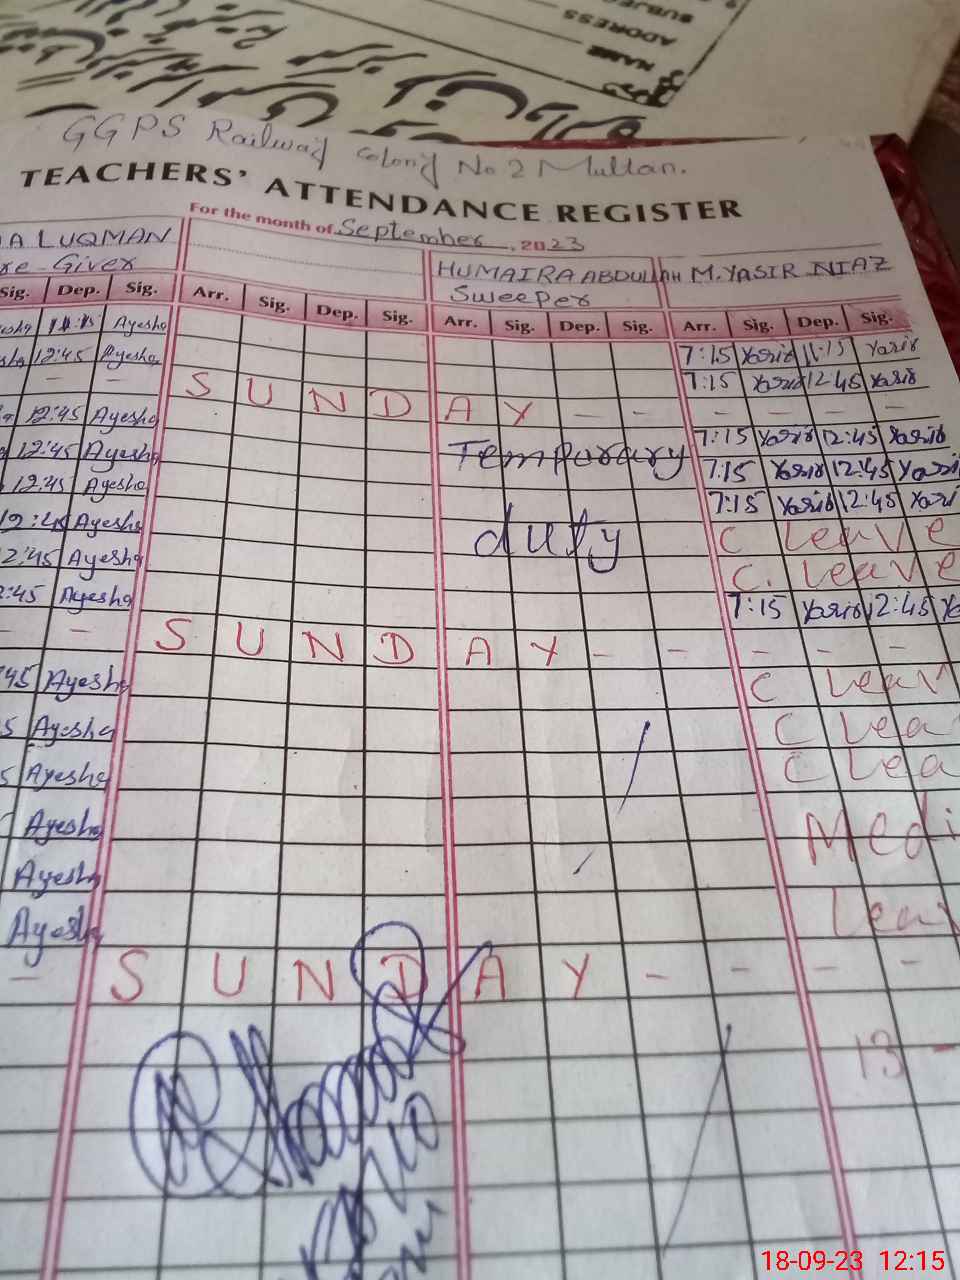 NAME
ADDRESS
GGPS Railway Colony No 2 Multan.
TEACHERS' ATTENDANCE REGISTER
For the month of September, 2023
A LUQMAN HUMAIRA ABDULLAH M. YASIR NIAZ
re-Giver Sweeper
Sig. Dep. Sig. Arr. Sig. Dep. Sig. Arr. Sig. Dep. Sig. Arr. Sig. Dep. Sig.
11:15 Ayesha 7:15 Yasir 11:15 Yasir
12:45 Ayesha 7:15 Yasir 12:45 Yasir
- - S U N D A Y - - - - - -
12:45 Ayesha 7:15 Yasir 12:45 Yasir
12:45 Ayesha Temporary 7:15 Yasir 12:45 Yasi
12:45 Ayesha 7:15 Yasir 12:45 Yasi
12:45 Ayesha duty C Leave
2:45 Ayesha C. Leave
:45 Ayesha 7:15 Yasir 12:45 Ya
- - S U N D A Y - - - - -
45 Ayesha C Leav
5 Ayesha C Lea
5 Ayesha C Lea
Ayesha Medi
Ayesha
Ayesha Leav
- S U N D A Y - - - -
13 -
18-09-23 12:15